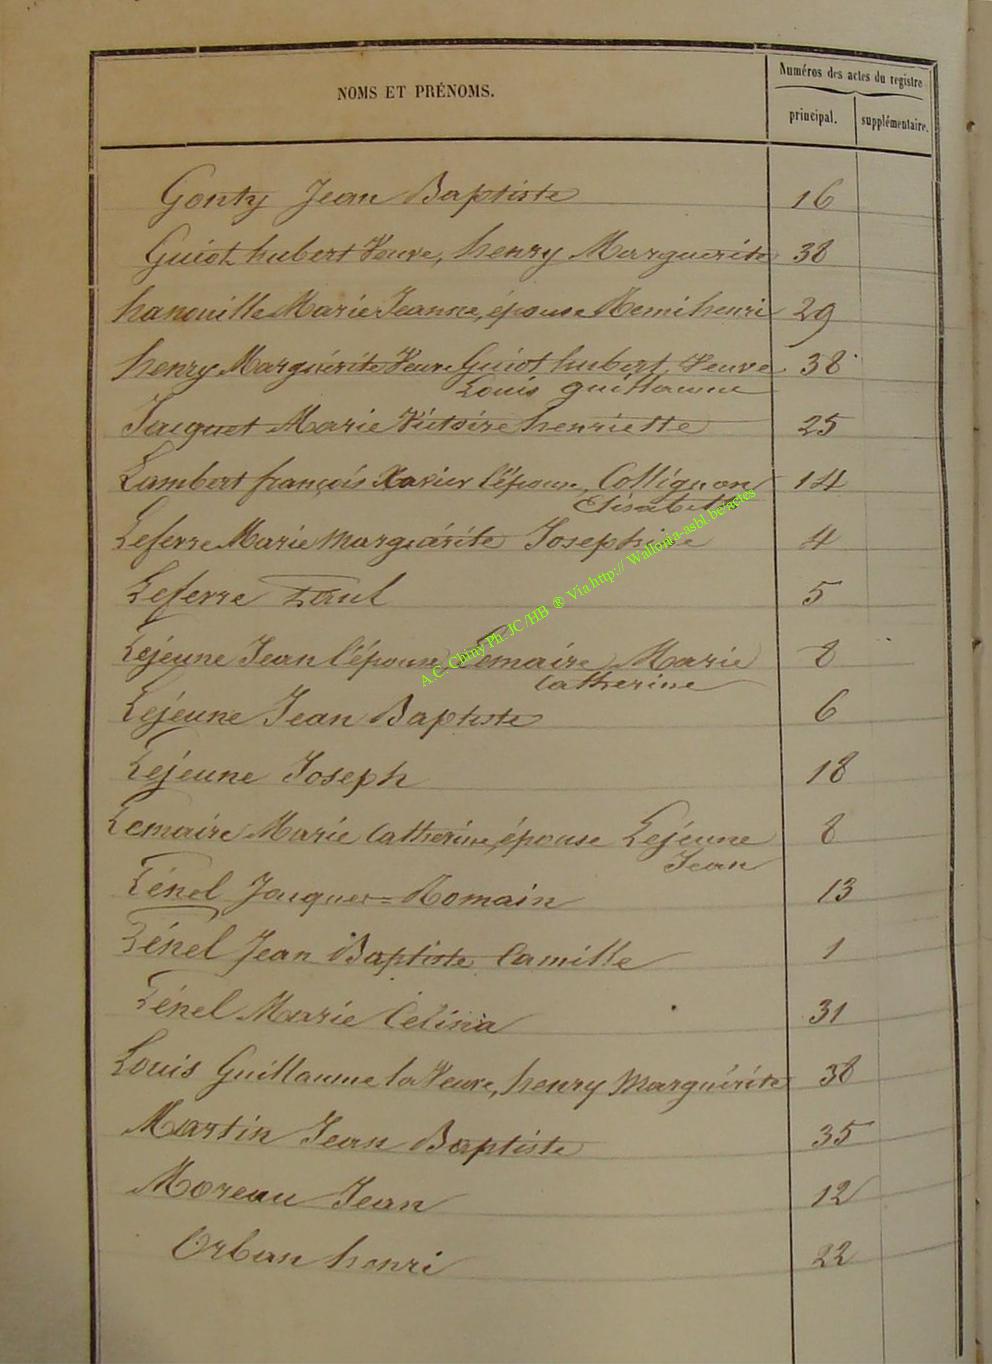 NOMS ET PRÉNOMS.
Numéros des actes du registre
principal. supplémentaire.
Gonty Jean Baptiste 16
Guiot hubert Veuve, henry Marguerite 38
hanouille Marie Jeanne, épouse Remi henri 29
henry Marguérite Veuve Guiot hubert, Veuve 38
Louis guillaume
Jacquet Marie Victoire henriette 25
Lambert françois Xavier l'épouse, Collignon 14
Elisabeth
Leferre Marie Marguérite Josephine 4
Leferre Paul 5
Lejeune Jean l'épouse, Lemaire Marie 8
Catherine
Lejeune Jean Baptiste 6
Lejeune Joseph 18
Lemaire Marie Catherine, épouse Lejeune 8
Jean
Lénel Jacques=Romain 13
Lénel Jean Baptiste Camille 1
Lénel Marie Célina 31
Louis Guillaume la Veuve, henry Marguérite 38
Martin Jean Baptiste 35
Moreau Jean 12
Orban henri 22
A.C. Chiny Ph. JC /HB ® Via http:// Wallonia-asbl.be/actes